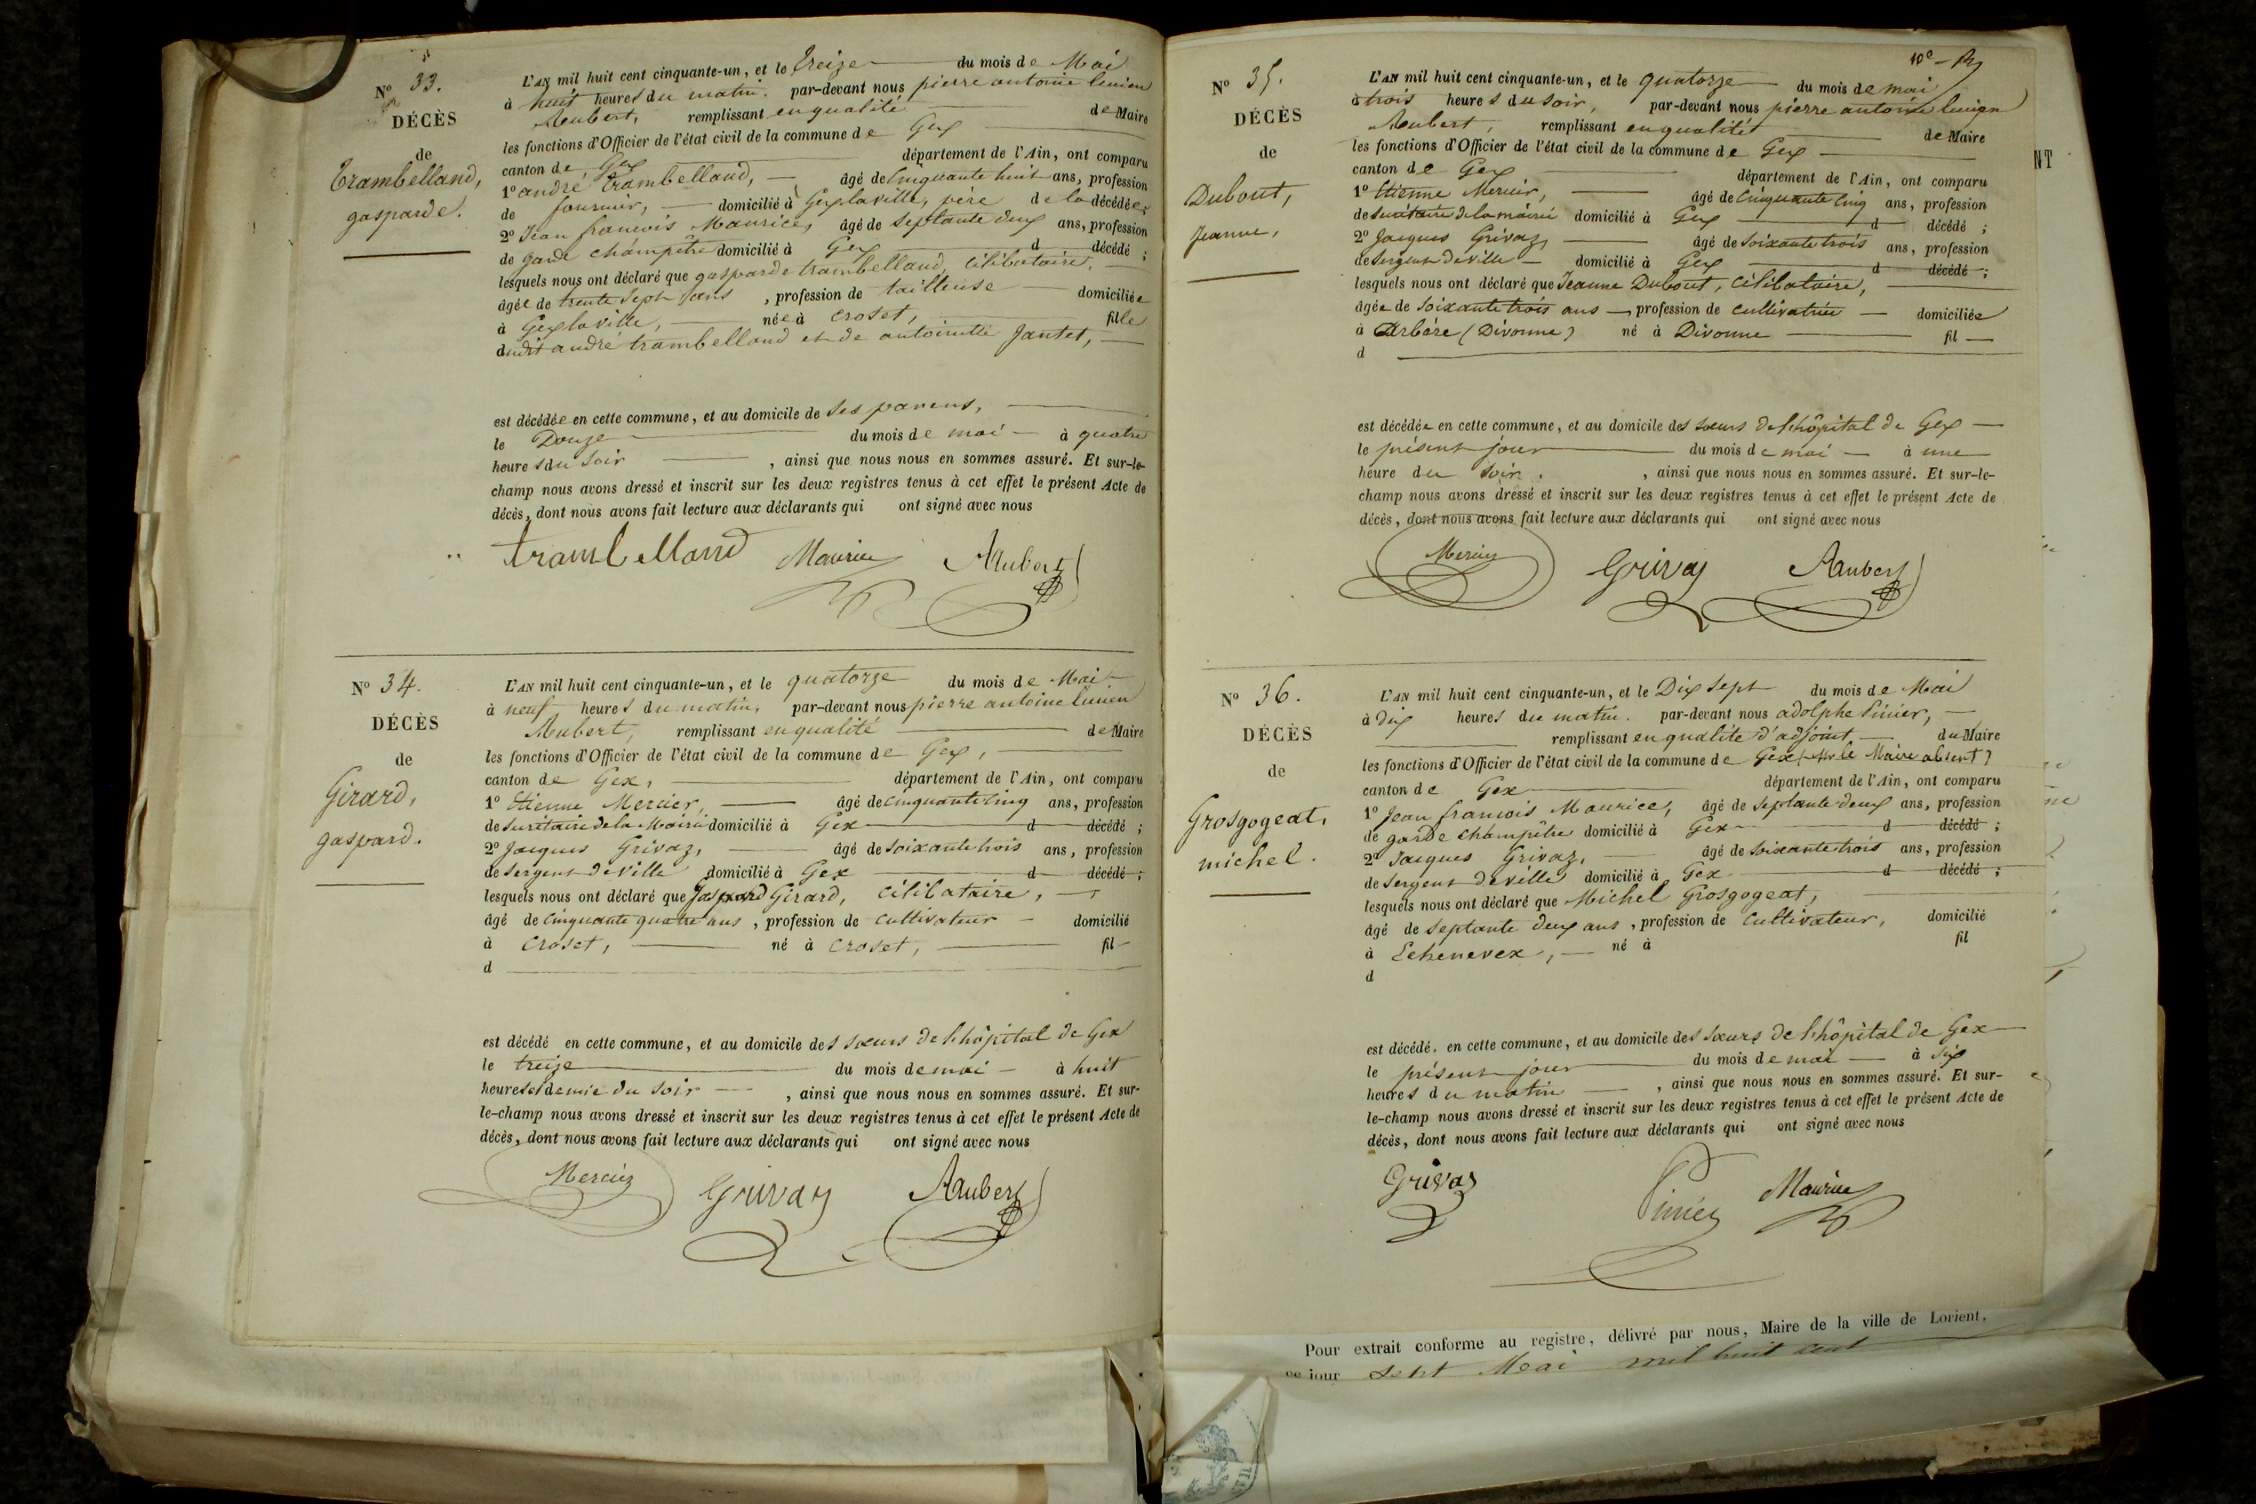 Nº 33.
DÉCÈS
de
Trambelland,
gasparde.
L'AN mil huit cent cinquante-un, et le treize du mois de Mai
à huit heures du matin. par-devant nous pierre antoine lucien
Aubert, remplissant en qualité de Maire
les fonctions d'Officier de l'état civil de la commune de Gex
canton de Gex département de l'Ain, ont comparu
1º andré trambelland, âgé de Cinquante huit ans, profession
de fournier, domicilié à Gexlaville, père de la décédée;
2º Jean francois Maurice, âgé de septante deux ans, profession
de garde champêtre domicilié à Gex d décédé ;
lesquels nous ont déclaré que gasparde trambelland, célibataire,
âgée de trente sept ans , profession de tailleuse domiciliée
à Gexlaville, née à croset, fille
dudit andré trambelland et de antoinette Jantet,
est décédée en cette commune, et au domicile de ses parens,
le Douze du mois de mai à quatre
heures du soir , ainsi que nous nous en sommes assuré. Et sur-le-
champ nous avons dressé et inscrit sur les deux registres tenus à cet effet le présent Acte de
décès, dont nous avons fait lecture aux déclarants qui ont signé avec nous
trambelland Maurice Aubert
Nº 34.
DÉCÈS
de
Girard,
gaspard.
L'AN mil huit cent cinquante-un, et le quatorze du mois de Mai
à neuf heures du matin, par-devant nous pierre antoine lucien
Aubert, remplissant en qualité de Maire
les fonctions d'Officier de l'état civil de la commune de Gex,
canton de Gex, département de l'Ain, ont comparu
1º Etienne Mercier, âgé de cinquante cinq ans, profession
de secrétaire de la Mairie domicilié à Gex d décédé ;
2º Jacques Grivaz, âgé de soixante trois ans, profession
de sergent de ville domicilié à Gex d décédé ;
lesquels nous ont déclaré que Gaspard Girard, célibataire,
âgé de cinquante quatre ans , profession de cultivateur domicilié
à croset, né à croset, fil
d
est décédé en cette commune, et au domicile des sœurs de l'hôpital de Gex
le treize du mois de mai à huit
heures et demie du soir , ainsi que nous nous en sommes assuré. Et sur-
le-champ nous avons dressé et inscrit sur les deux registres tenus à cet effet le présent Acte de
décès, dont nous avons fait lecture aux déclarants qui ont signé avec nous
Mercier Grivaz Aubert
Nº 35.
DÉCÈS
de
Dubout,
Jeanne,
L'AN mil huit cent cinquante-un, et le quatorze du mois de mai
à trois heures du soir, par-devant nous pierre antoine lucien
Aubert, remplissant en qualité de Maire
les fonctions d'Officier de l'état civil de la commune de Gex
canton de Gex département de l'Ain, ont comparu
1º Etienne Mercier, âgé de Cinquante cinq ans, profession
de secrétaire de la mairie domicilié à Gex d décédé ;
2º Jacques Grivaz, âgé de soixante trois ans, profession
de sergent de ville domicilié à Gex d décédé ;
lesquels nous ont déclaré que Jeanne Dubout, célibataire,
âgée de soixante trois ans , profession de cultivatrice domiciliée
à Arbère (Divonne) né à Divonne fil
d
est décédée en cette commune, et au domicile des sœurs de l'hôpital de Gex
le présent jour du mois de mai à une
heure du soir. , ainsi que nous nous en sommes assuré. Et sur-le-
champ nous avons dressé et inscrit sur les deux registres tenus à cet effet le présent Acte de
décès, dont nous avons fait lecture aux déclarants qui ont signé avec nous
Mercier Grivaz Aubert
Nº 36.
DÉCÈS
de
Grosgogeat,
michel.
L'AN mil huit cent cinquante-un, et le Dix sept du mois de Mai
à dix heures du matin. par-devant nous adolphe Pinier,
remplissant en qualité d'adjoint du Maire
les fonctions d'Officier de l'état civil de la commune de Gex (Mr le Maire absent)
canton de Gex département de l'Ain, ont comparu
1º Jean francois Maurice, âgé de septante deux ans, profession
de garde champêtre domicilié à Gex d décédé ;
2º Jacques Grivaz, âgé de soixante trois ans, profession
de sergent de ville domicilié à Gex d décédé ;
lesquels nous ont déclaré que Michel Grosgogeat,
âgé de septante deux ans , profession de cultivateur, domicilié
à Echenevex, né à fil
d
est décédé. en cette commune, et au domicile des sœurs de l'hôpital de Gex
le présent jour du mois de mai à six
heures du matin , ainsi que nous nous en sommes assuré. Et sur-
le-champ nous avons dressé et inscrit sur les deux registres tenus à cet effet le présent Acte de
décès, dont nous avons fait lecture aux déclarants qui ont signé avec nous
Grivaz Pinier Maurice
NT
Pour extrait conforme au registre, délivré par nous, Maire de la ville de Lorient,
ce jour sept Mai mil huit cent